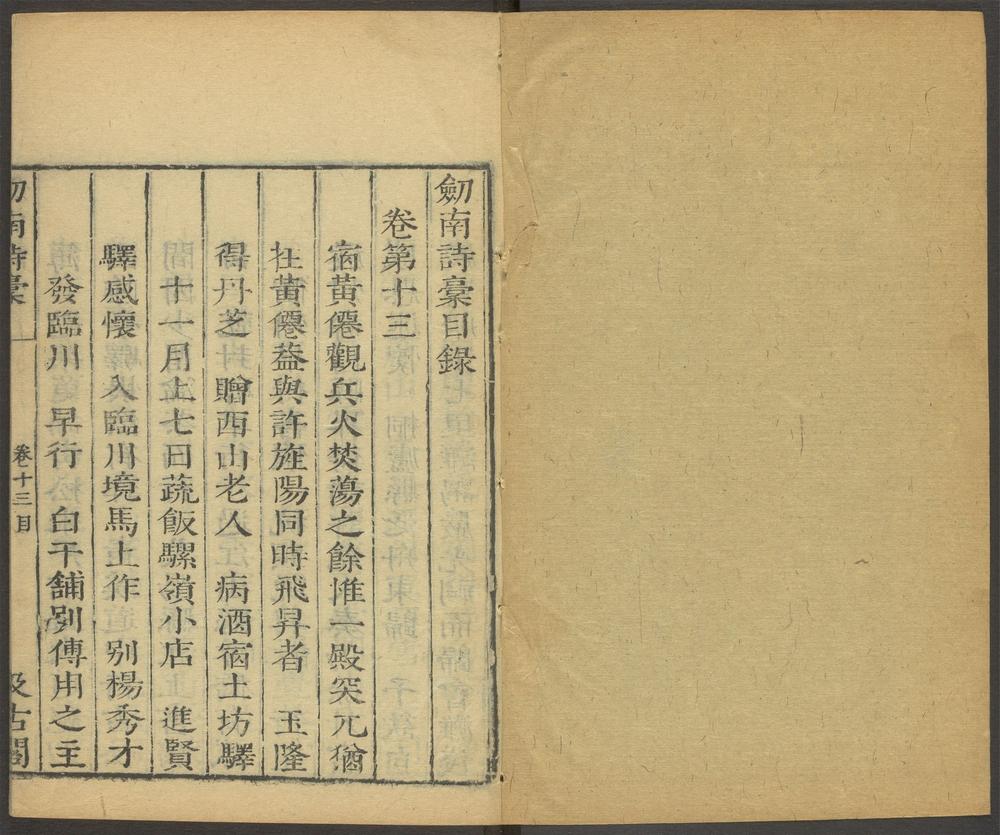 劒南詩稾目錄
卷第十三
宿黃僊觀兵火焚蕩之餘惟一殿突兀猶
在黃僊葢與許旌陽同時飛昇者 玉隆
得丹芝 贈西山老人 病酒宿土坊驛
十一月上七日蔬飯騾嶺小店 進賢
驛感懷 入臨川境馬上作 別楊秀才
發臨川 早行 白干舖別傅用之主
劒南詩稾
卷十三目
汲古閣